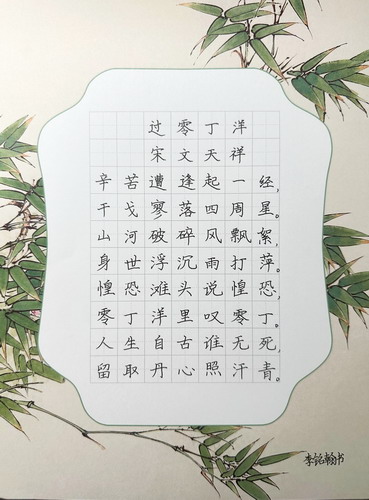 过零丁洋
宋文天祥
辛苦遭逢起一经,
干戈寥落四周星。
山河破碎风飘絮,
身世浮沉雨打萍。
惶恐滩头说惶恐,
零丁洋里叹零丁。
人生自古谁无死,
留取丹心照汗青。
李铭翰书